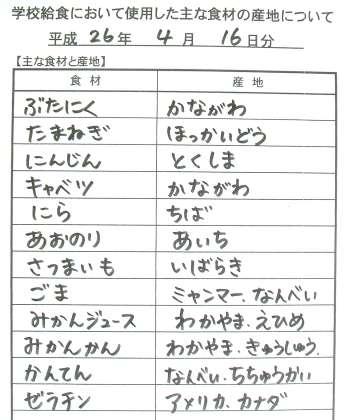 学校給食において使用した主な食材の産地について
平成 26 年 4 月 16 日分
【主な食材と産地】
食材 産地
ぶたにく かながわ
たまねぎ ほっかいどう
にんじん とくしま
キャベツ かながわ
にら ちば
あおのり あいち
さつまいも いばらき
ごま ミャンマー、なんべい
みかんジュース わかやま、えひめ
みかんかん わかやま、きゅうしゅう、
かんてん なんべい、ちちゅうかい
ゼラチン アメリカ、カナダ